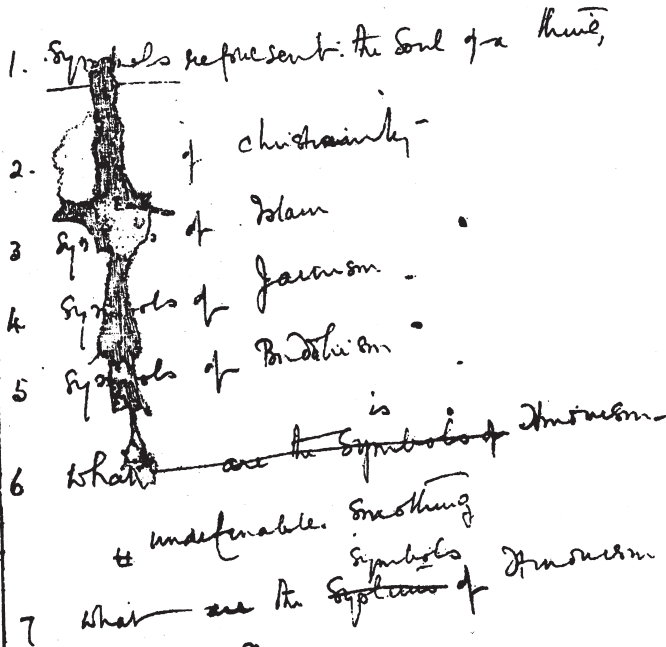 1. Symbols represent the Soul of a thing,
2. of Christianity -
3 Sy of Islam
4 Symbols of Jainism
5 Symbols of Buddhism
is
6 What are the Symbols of Hinduism -
undefinable. Something
Symbols
7 What are the of Hinduism